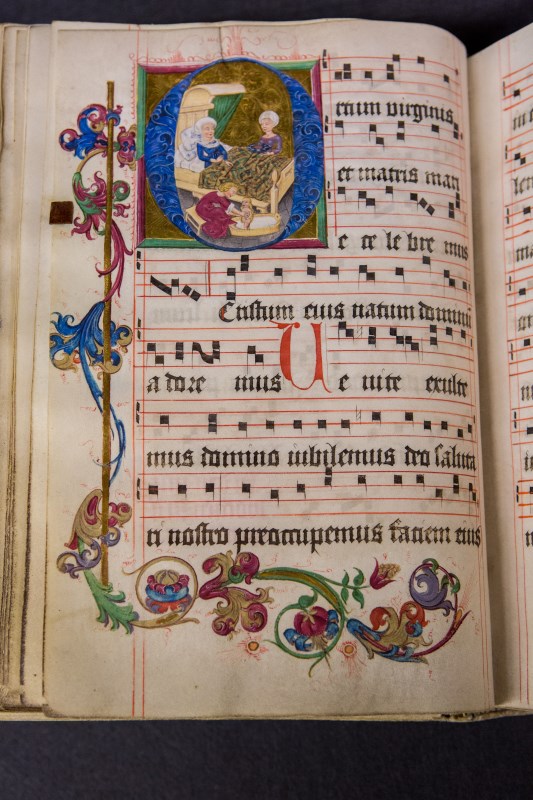 Ortum virginis
et matris mari
e ce le bre mus
Cristum eius natum dominu
a dore mus Ue nite exulte
mus domino iubilemus deo saluta
ri nostro preoccupemus faciem eius